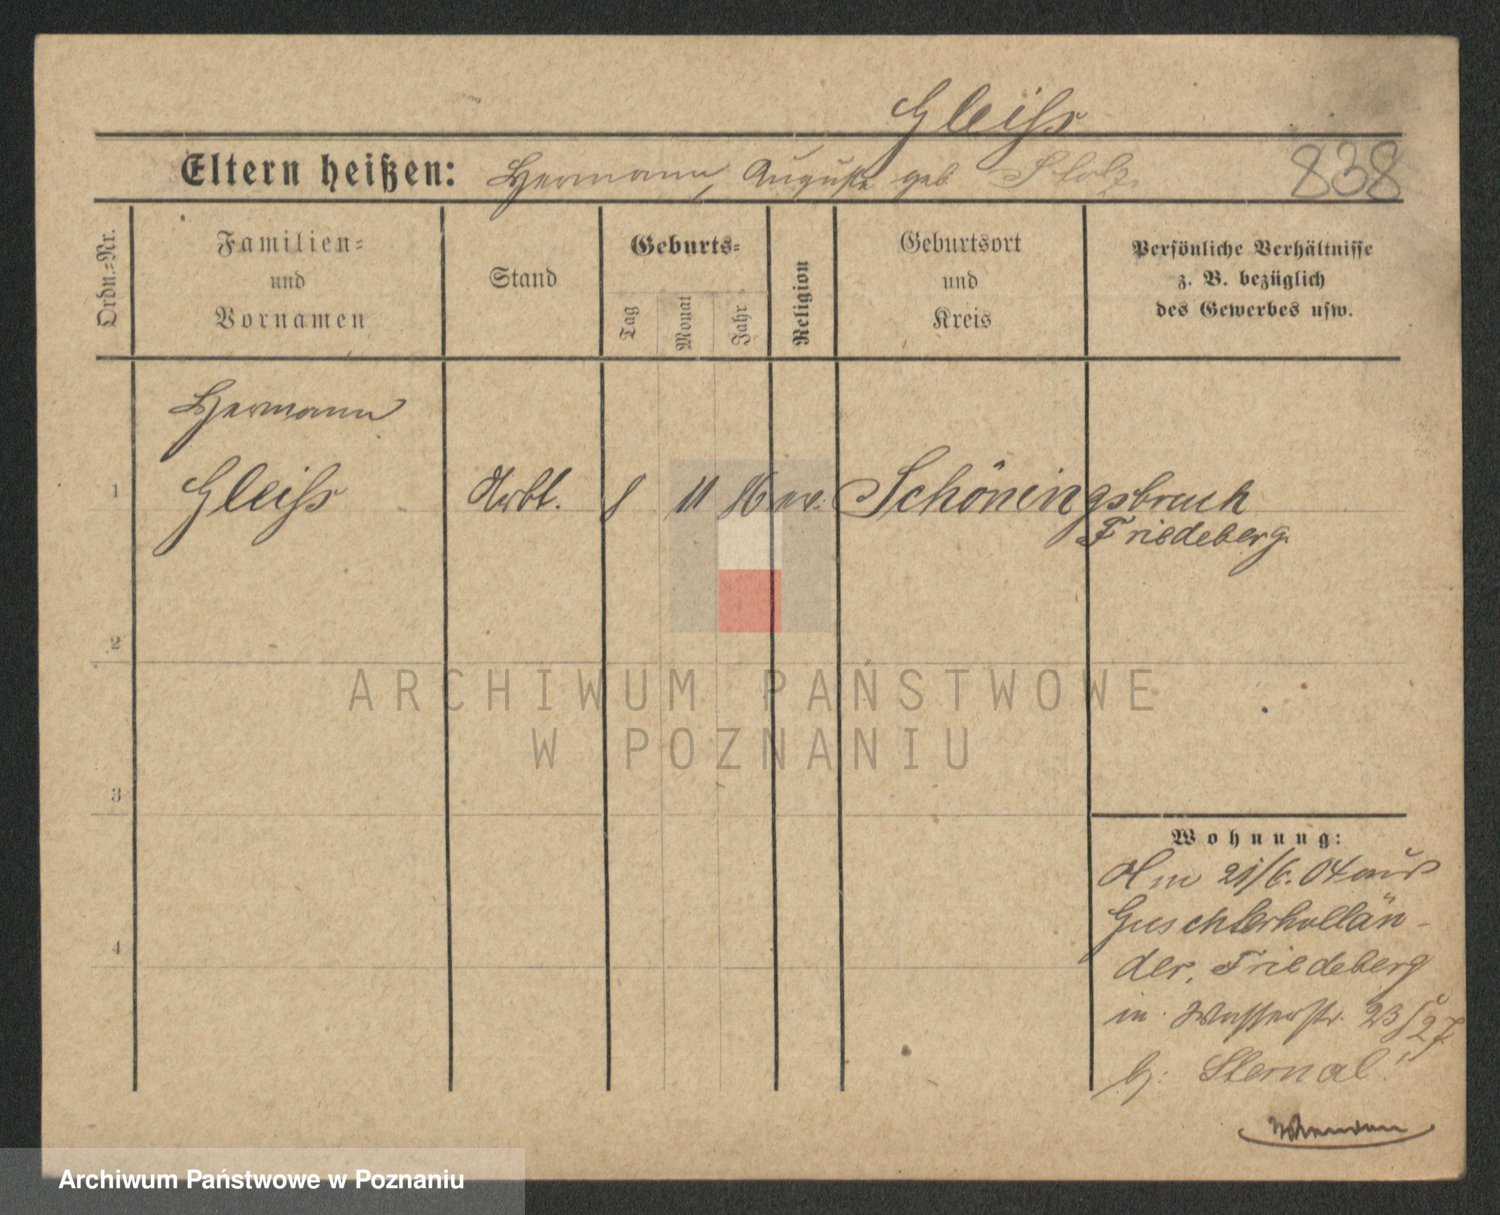 Gleiss
Eltern heißen: Hermann, Auguste geb Stolz.
838
Ordn.=Nr.
Familien=
und
Vornamen
Stand
Geburts=
Tag
Monat
Jahr
Religion
Geburtsort
und
Kreis
Persönliche Verhältnisse
z. B. bezüglich
des Gewerbes usw.
Hermann
1 Gleiss Arbt. 8 11 86 ev. Schöningsbruch
Friedeberg.
2
3
4
ARCHIWUM PAŃSTWOWE
W POZNANIU
Wohnung:
Am 21/6.04 aus
Guschterhollän-
der, Friedeberg
in Wasserstr. 23/27
b. Sternal
Archiwum Państwowe w Poznaniu